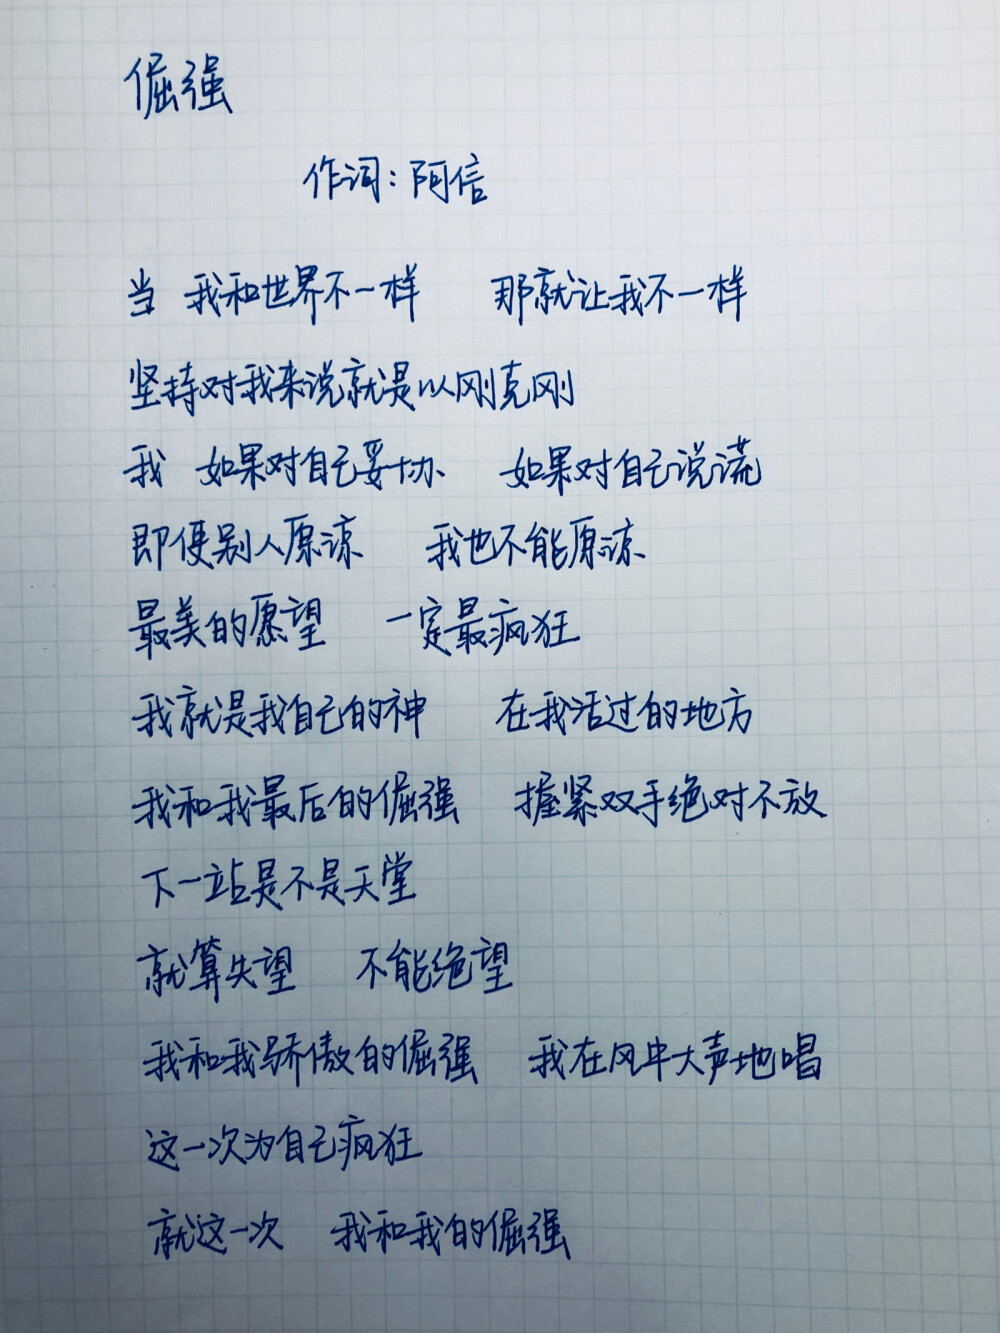 倔强
作词：阿信
当 我和世界不一样 那就让我不一样
坚持对我来说就是以刚克刚
我 如果对自己妥协 如果对自己说谎
即使别人原谅 我也不能原谅
最美的愿望 一定最疯狂
我就是我自己的神 在我活过的地方
我和我最后的倔强 握紧双手绝对不放
下一站是不是天堂
就算失望 不能绝望
我和我骄傲的倔强 我在风中大声地唱
这一次为自己疯狂
就这一次 我和我的倔强